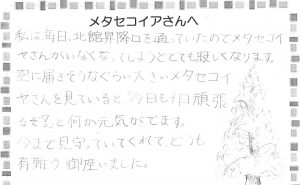 メタセコイアさんへ
私は、毎日、北館昇降口を通っていたのでメタセコイ
ヤさんがいなくなってしまうととても寂しくなります。
空に届きそうなぐらい大きいメタセコイ
ヤさんを見ていると「今日も1日頑張
るぞ」と何か元気がでます。
今まで見守っていてくれて、どうも
有難う御座いました。